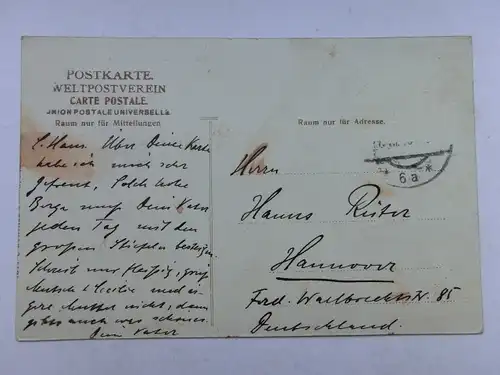 POSTKARTE.
WELTPOSTVEREIN
CARTE POSTALE.
UNION POSTALE UNIVERSELLE.
Raum nur für Mitteilungen
Raum nur für Adresse.
L. Hans. Über Deine Karte
habe ich mich sehr
gefreut. Solch hohe
Berge muß Dein Vater
jeden Tag mit den
großen Stiefeln besteigen.
Schreib nur fleißig, grüß
und
Mutter nicht, dann
gibts auch was schönes.
Dein Vater
Herrn
Hanns Rüter
Hannover
Ferd. Wallbrechtstr. 85
Deutschland.
* 6a *